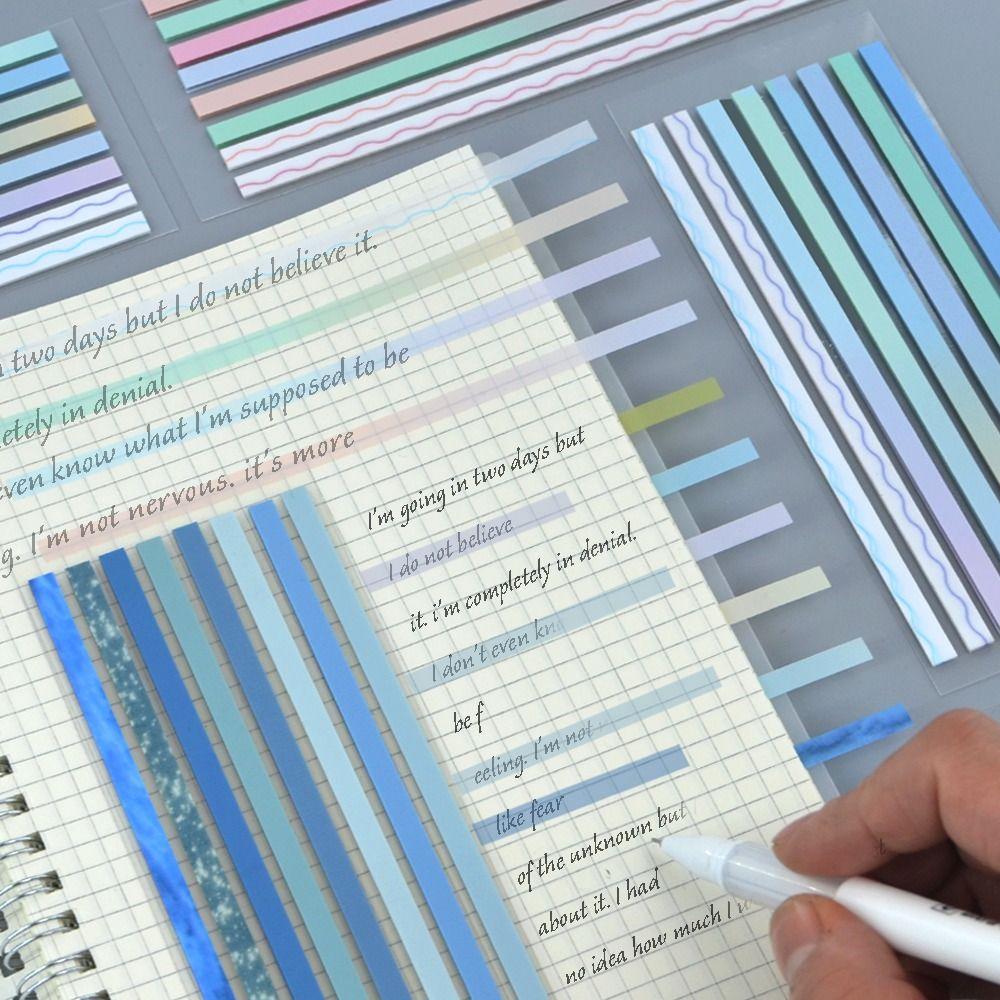 two days but I do not believe it.
etely in denial.
even know what I'm supposed to be
g. I'm not nervous. it's more
I'm going in two days but
I do not believe
it. i'm completely in denial.
I don't even kn
be f
eeling. I'm not
like fear
of the unknown but
about it. I had
no idea how much I